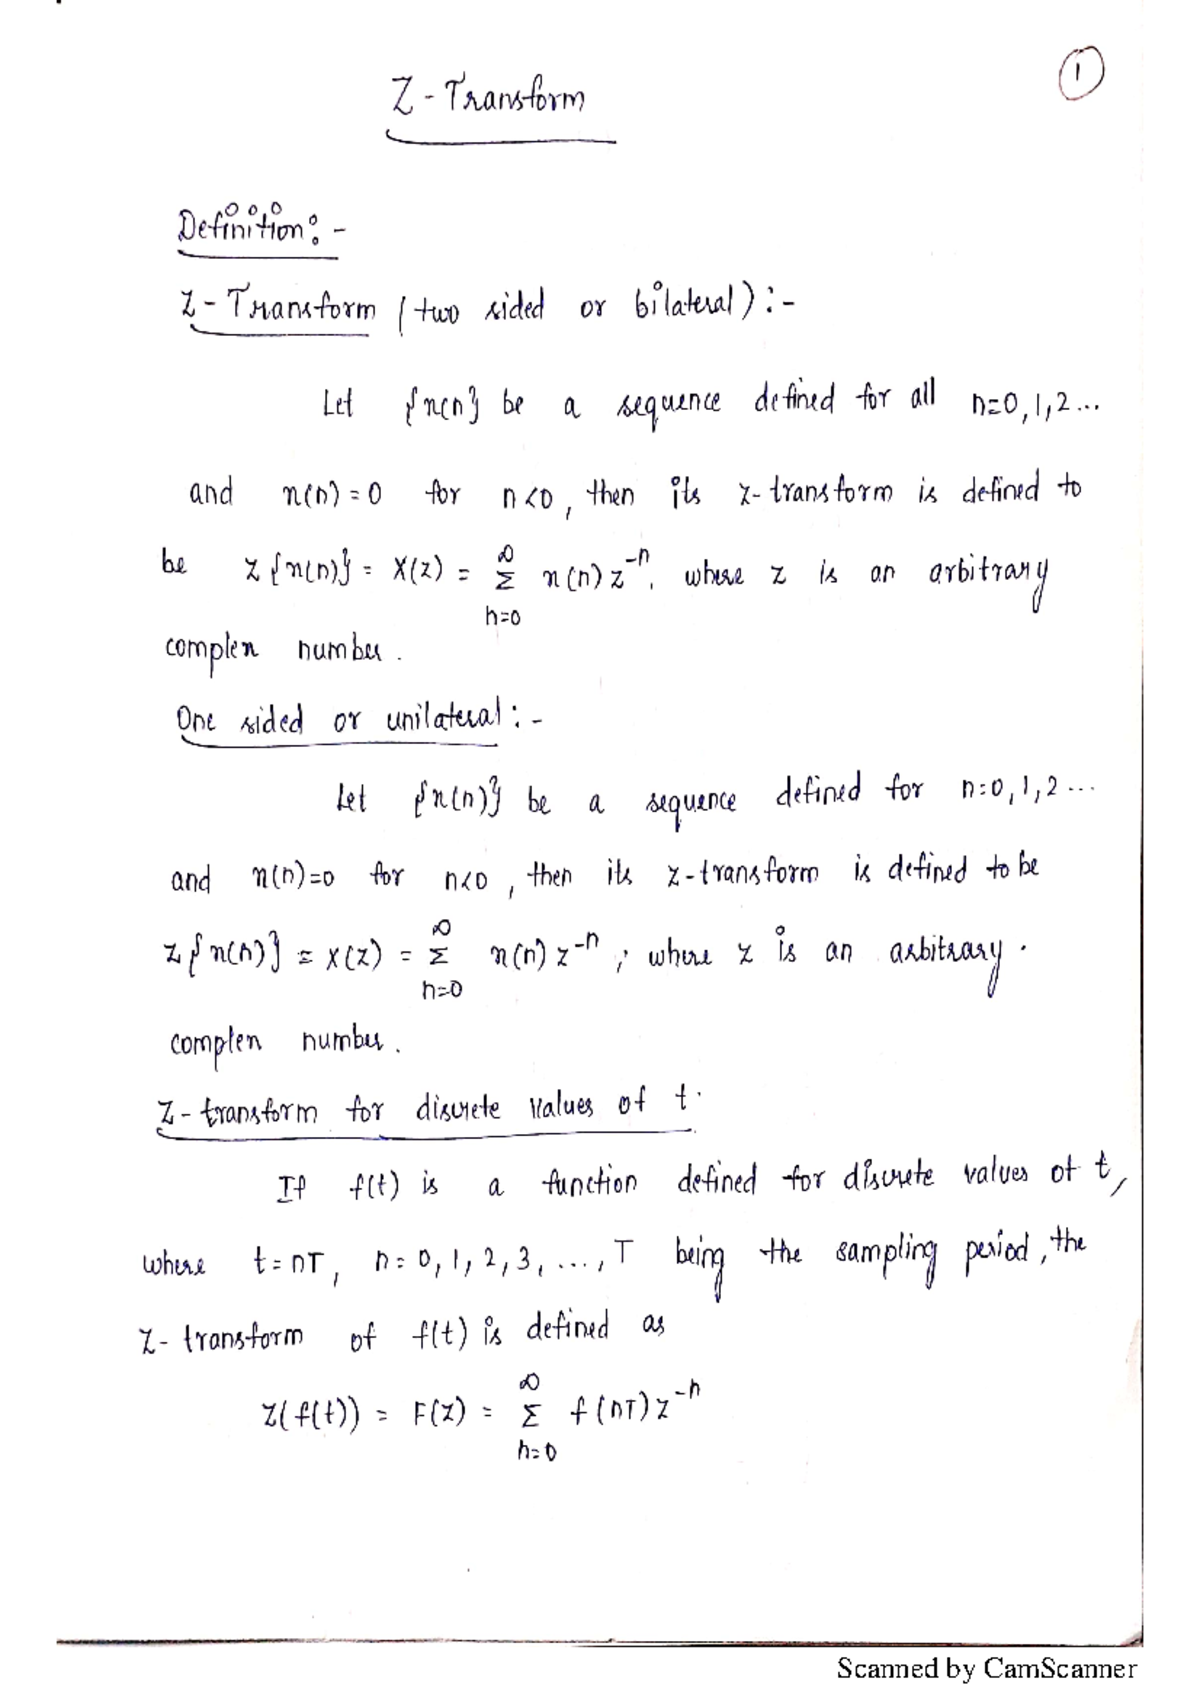 1
Z - Transform
Definition: -
Z - Transform (two sided or bilateral) : -
Let {x(n} be a sequence defined for all n=0,1,2...
and x(n) = 0 for n<0, then its z-transform is defined to
be Z{x(n)} = X(z) = ∞ Σ n=0 x(n) z^-n. where z is an arbitrary
complex number.
One sided or unilateral : -
Let {x(n)} be a sequence defined for n=0,1,2...
and x(n)=0 for n<0, then its z-transform is defined to be
Z{x(n)} = X(z) = ∞ Σ n=0 x(n) z^-n ; where z is an arbitrary.
complex number.
Z-transform for discrete values of t.
If f(t) is a function defined for discrete values of t,
where t = nT, n = 0, 1, 2, 3, ..., T being the sampling period, the
Z-transform of f(t) is defined as
Z(f(t)) = F(z) = ∞ Σ n=0 f(nT) z^-n
Scanned by CamScanner